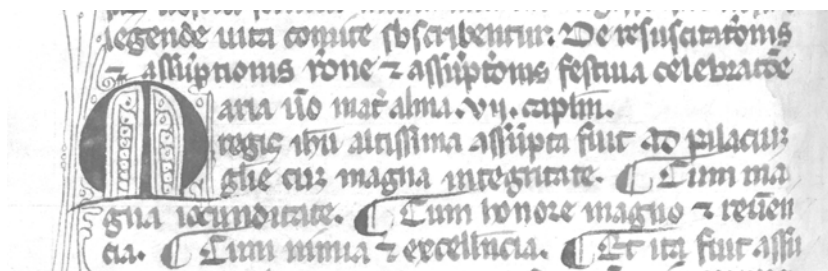 legende uita comite sbscribentur. De resuscitatōnis
⁊ assūptionis rōne ⁊ assūptōnis festiua celebratōe
Maria ūo mat̄ alma. vij. caplm̄.
regis ihū altissima assūpta fuit ad palaciuȝ
glīe cuȝ magna integritate. ¶ Cum ma
gna iocunditate. ¶ Cum honore magno ⁊ reuēn
cia. ¶ Cum nimia ⁊ excellēncia. ¶ Et ita fuit assū